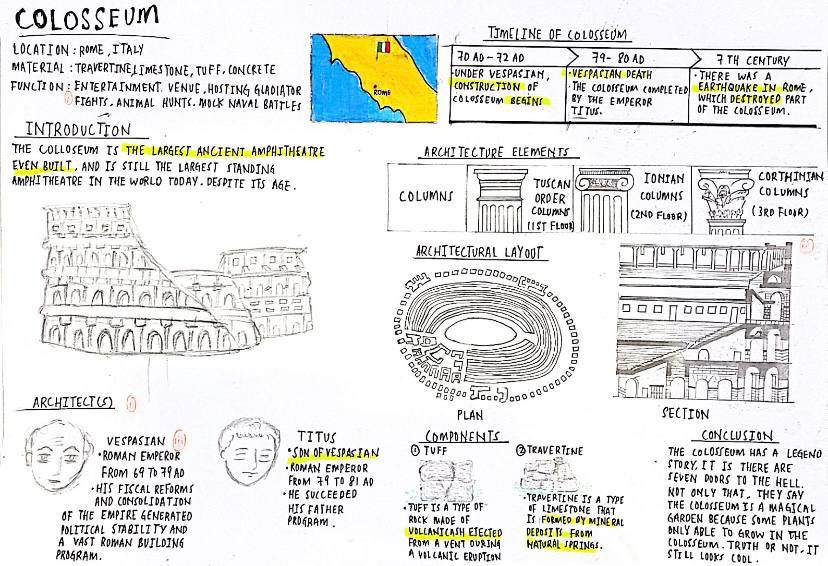 COLOSSEUM
LOCATION : ROME, ITALY
MATERIAL : TRAVERTINE, LIMESTONE, TUFF, CONCRETE
FUNCTION : ENTERTAINMENT VENUE, HOSTING GLADIATOR
FIGHTS, ANIMAL HUNTS, MOCK NAVAL BATTLES
INTRODUCTION
THE COLLOSEUM IS THE LARGEST ANCIENT AMPHITHEATRE
EVEN BUILT, AND IS STILL THE LARGEST STANDING
AMPHITHEATRE IN THE WORLD TODAY. DESPITE ITS AGE.
ROME
TIMELINE OF COLOSSEUM
70 AD - 72 AD
79 - 80 AD
7 TH CENTURY
• UNDER VESPASIAN,
CONSTRUCTION OF
COLOSEUM BEGINS
• VESPASIAN DEATH
• THE COLOSSEUM COMPLETED
BY THE EMPEROR
TITUS.
• THERE WAS A
EARTHQUAKE IN ROME,
WHICH DESTROYED PART
OF THE COLOSSEUM.
ARCHITECTURE ELEMENTS
COLUMNS
TUSCAN
ORDER
COLUMNS
(1ST FLOOR)
IONIAN
COLUMNS
(2ND FLOOR)
CORTHINIAN
COLUMNS
(3RD FLOOR)
ARCHITECTURAL LAYOUT
PLAN
SECTION
ARCHITECT(S)
VESPASIAN
• ROMAN EMPEROR
FROM 69 TO 79 AD
• HIS FISCAL REFORMS
AND CONSOLIDATION
OF THE EMPIRE GENERATED
POLITICAL STABILITY AND
A VAST ROMAN BUILDING
PROGRAM.
TITUS
• SON OF VESPASIAN
• ROMAN EMPEROR
FROM 79 TO 81 AD
• HE SUCCEEDED
HIS FATHER
PROGRAM.
COMPONENTS
① TUFF
• TUFF IS A TYPE OF
ROCK MADE OF
VOLCANICASH EJECTED
FROM A VENT DURING
A VOLCANIC ERUPTION
② TRAVERTINE
• TRAVERTINE IS A TYPE
OF LIMESTONE THAT
IS FORMED BY MINERAL
DEPOSITS FROM
NATURAL SPRINGS.
CONCLUSION
THE COLOSSEUM HAS A LEGEND
STORY. IT IS THERE ARE
SEVEN DOORS TO THE HELL.
NOT ONLY THAT, THEY SAY
THE COLOSSEUM IS A MAGICAL
GARDEN BECAUSE SOME PLANTS
ONLY ABLE TO GROW IN THE
COLOSSEUM. TRUTH OR NOT, IT
STILL LOOKS COOL.